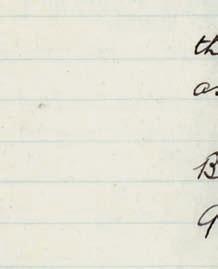 th
as
B
9